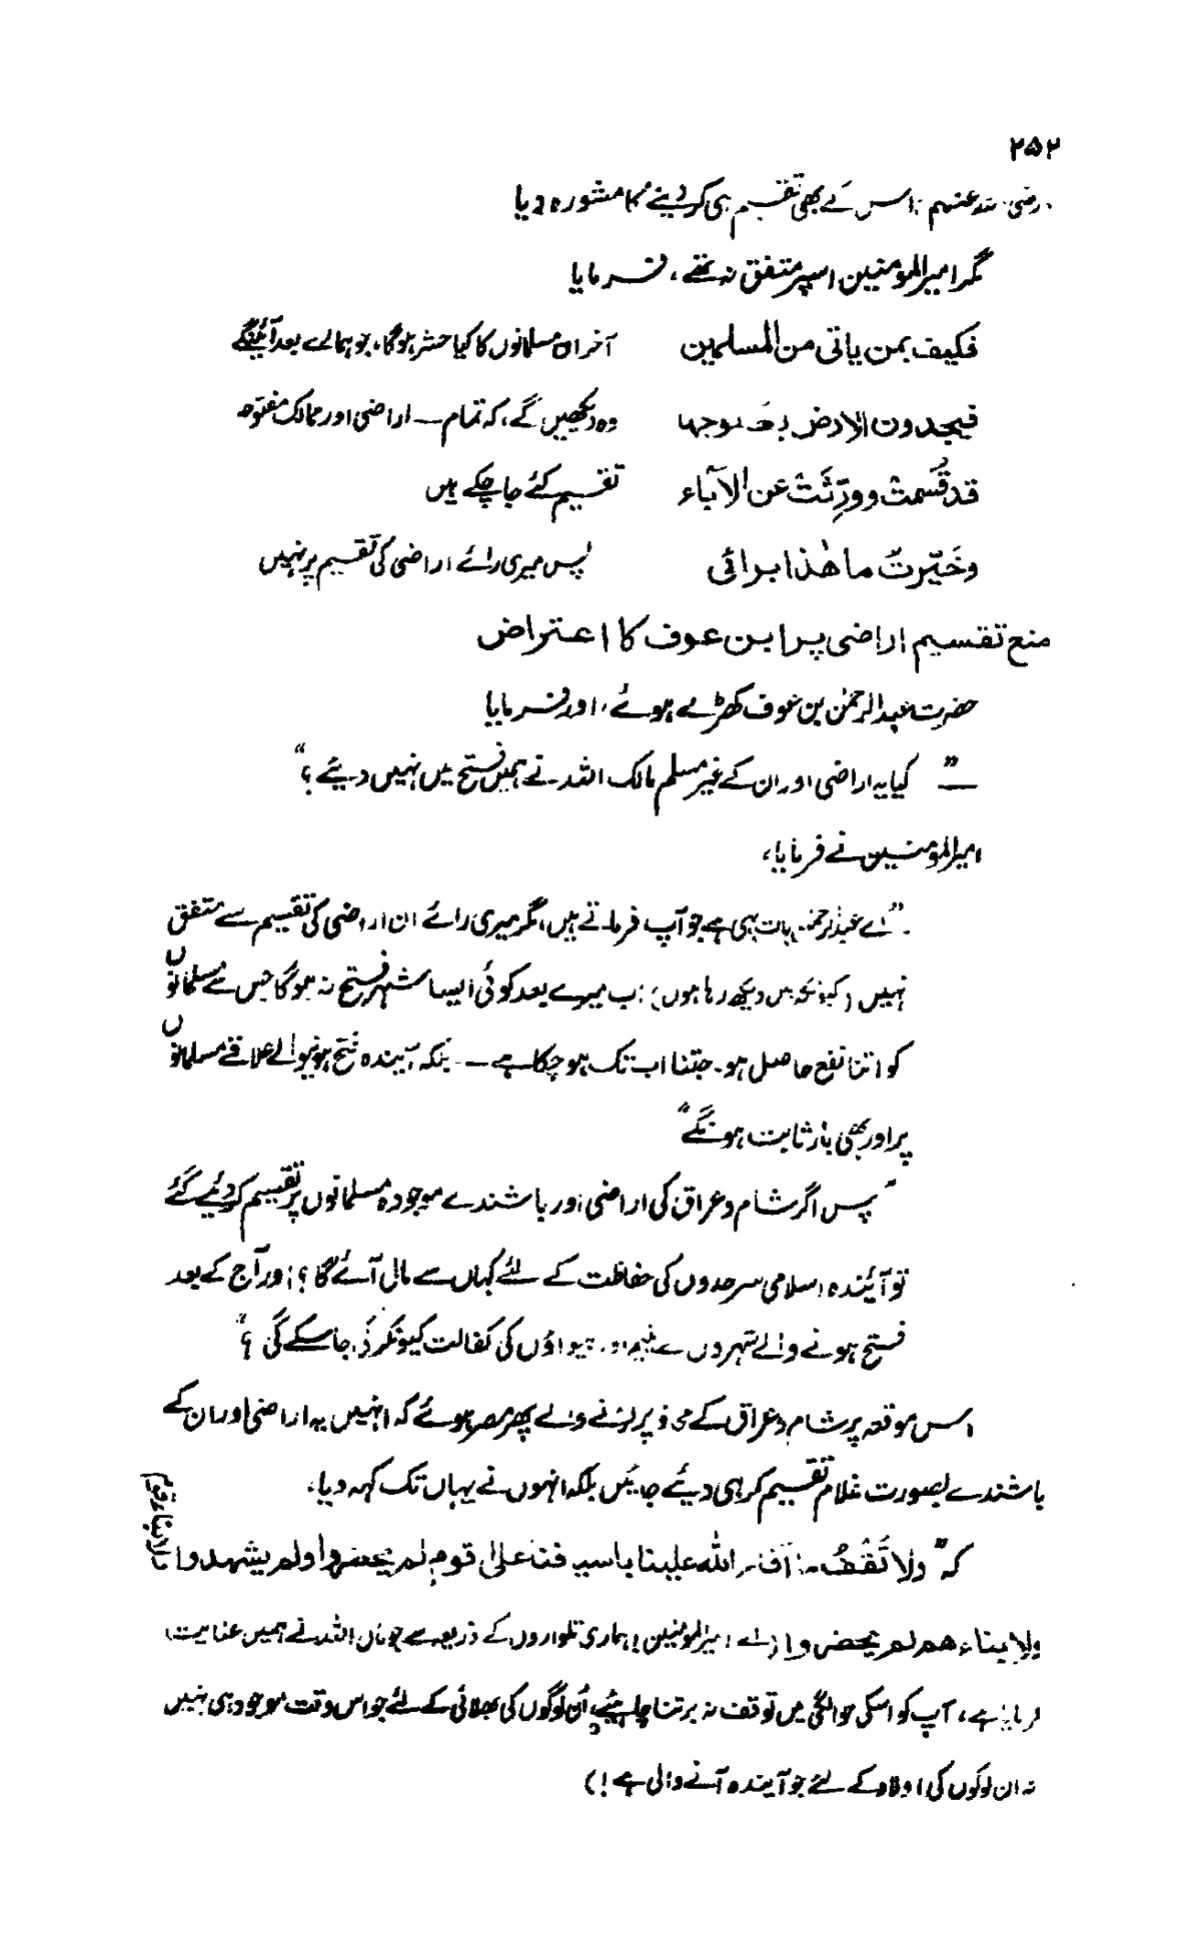 ۲۵۲
رضی اللہ عنہم) اس کے بھی تقسیم ہی کر دینے کا مشورہ دیا
مگر امیرالمومنین اسپر متفق نہ تھے، فرمایا
فکیف بمن یاتی من المسلمین آخر ان مسلمانوں کا کیا حشر ہوگا، جو ہمارے بعد آئینگے
فیجدون الارض بعلوجہا وہ دیکھیں گے، کہ تمام ـــ اراضی اور ممالک مفتوحہ
قد قُسمتْ وورِّثَتْ عن الآباء تقسیم کئے جا چکے ہیں
وخَیّرتْ ما ھٰذا برائی پس میری رائے اراضی کی تقسیم پر نہیں
منع تقسیم اراضی پر ابن عوف کا اعتراض
حضرت عبدالرحمٰن بن عوف کھڑے ہوئے، اور فرمایا
ـــ" کیا یہ اراضی اور ان کے غیر مسلم مالک اللہ نے ہمیں فتح میں نہیں دیئے؟"
امیرالمومنین نے فرمایا،
"اے عبدالرحمٰن بات یہی ہے جو آپ فرماتے ہیں، مگر میری رائے ان اراضی کی تقسیم سے متفق
نہیں (کیونکہ میں دیکھ رہا ہوں) اب میرے بعد کوئی ایسا شہر فتح نہ ہوگا جس سے مسلمانوں
کو اتنا نفع حاصل ہو۔ جتنا اب تک ہو چکا ہے ـــ بلکہ آیندہ فتح ہونیوالے علاقے مسلمانوں
پر اور بھی بار ثابت ہونگے"
"پس اگر شام و عراق کی اراضی اور باشندے موجودہ مسلمانوں پر تقسیم کر دیئے گئے
تو آیندہ اسلامی سرحدوں کی حفاظت کے لئے کہاں سے مال آئے گا؟ اور آج کے بعد
فتح ہونے والے شہروں سے یتیم اور بیواؤں کی کفالت کیونکر کی جا سکے گی؟"
اس موقعہ پر شام و عراق کے محاذ پر لڑنے والے پھر مصر ہوئے کہ انہیں یہ اراضی اور ان کے
باشندے بصورت غلام تقسیم کر ہی دیئے جائیں بلکہ انہوں نے یہاں تک کہہ دیا،
کہ "ولا تَقِفُ ما آفاء اللہ علینا باسیافنا علیٰ قوم لم یحضروا ولم یشہدوا ولابناء قوم
ولابناء ھم لم یحضروا (اے امیرالمومنین! ہماری تلواروں کے ذریعہ سے جو مال اللہ نے ہمیں عنایت
فرمایا ہے، آپ کو اسکی حوالگی میں توقف نہ برتنا چاہیئے، اُن لوگوں کی بھلائی کے لئے جو اس وقت موجود ہی نہیں
نہ ان لوگوں کی اولاد کے لئے جو آیندہ آنے والی ہے!)